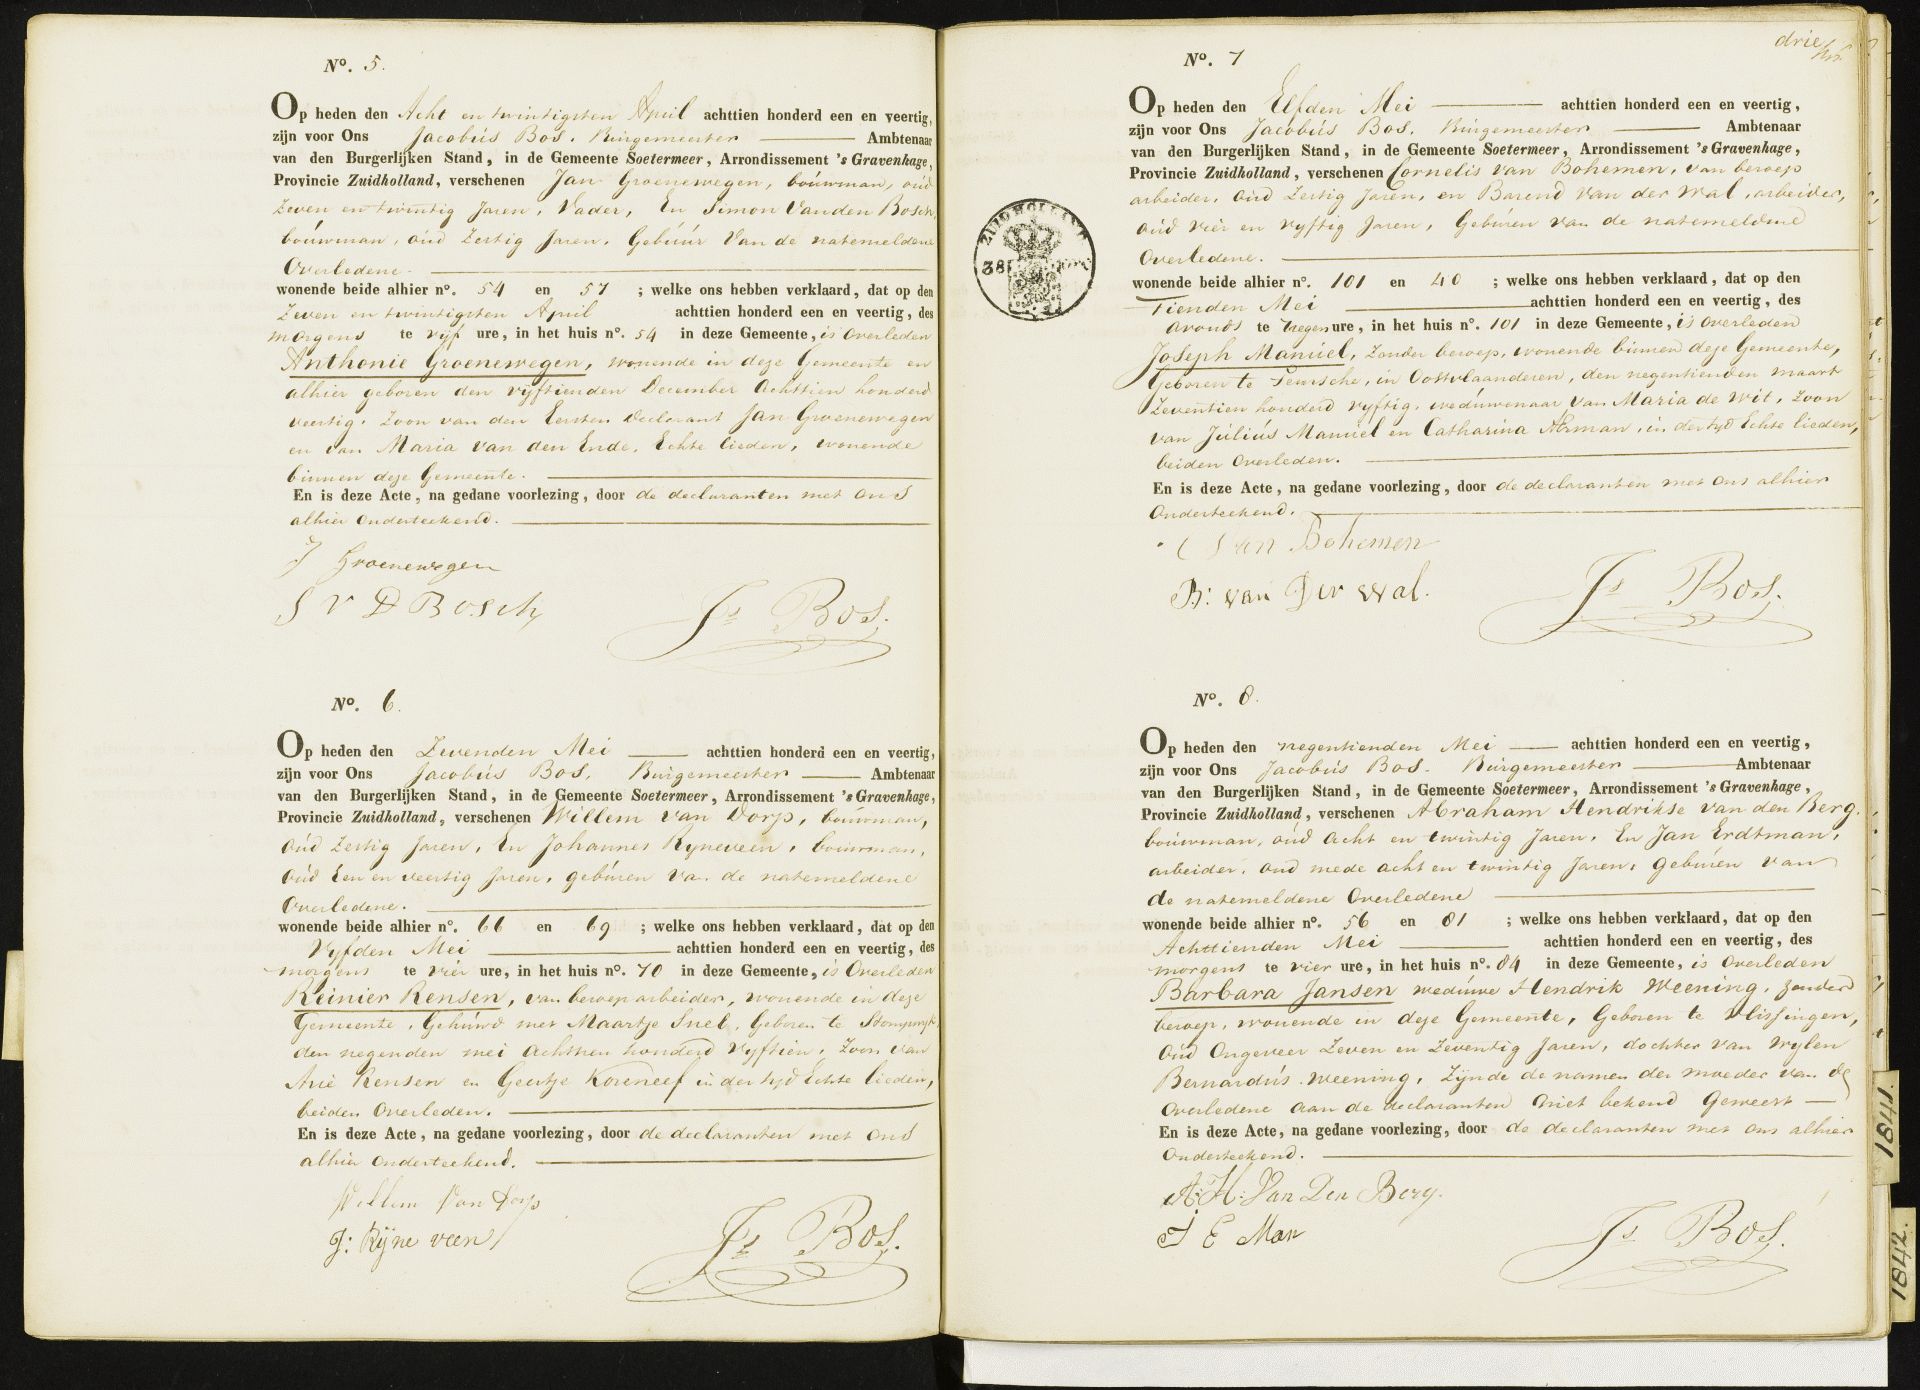 No. 5.
Op heden den Acht en twintigsten April achttien honderd een en veertig,
zijn voor Ons Jacobús Bos. Búrgemeester Ambtenaar
van den Burgerlijken Stand, in de Gemeente Soetermeer, Arrondissement 's Gravenhage,
Provincie Zuidholland, verschenen Jan Groenewegen, boúwman, oúd
Zeven en twintig Jaren, Vader, En Simon Van den Bosch,
boúwman, oúd Zestig Jaren, Gebúúr Van de natemeldene
Overledene.
wonende beide alhier no. 54 en 57 ; welke ons hebben verklaard, dat op den
Zeven en twintigsten April achttien honderd een en veertig, des
morgens te vijf ure, in het huis no. 54 in deze Gemeente, is Overleden
Anthonie Groenewegen, wonende in deze Gemeente en
alhier geboren den vijftienden December Achttien honderd
veertig. Zoon van den Eersten Declarant Jan Groenewegen
en van Maria van den Ende, Echte lieden, wonende
binnen deze Gemeente.
En is deze Acte, na gedane voorlezing, door de declaranten met ons
alhier Onderteekend.
J Groenewegen
S V D Bosch
Js Bos.
No. 6.
Op heden den Zevenden Mei achttien honderd een en veertig,
zijn voor Ons Jacobús Bos, Búrgemeester Ambtenaar
van den Burgerlijken Stand, in de Gemeente Soetermeer, Arrondissement 's Gravenhage,
Provincie Zuidholland, verschenen Willem van Dorp, boúwman,
Oúd Zestig Jaren, En Johannes Ryneveen, boúwman,
Oúd Een en veertig Jaren, gebúren Van de natemeldene
Overledene.
wonende beide alhier no. 66 en 69 ; welke ons hebben verklaard, dat op den
Vyfden Mei achttien honderd een en veertig, des
morgens te vier ure, in het huis no. 70 in deze Gemeente, is Overleden
Reinier Rensen, van beroep arbeider, wonende in deze
Gemeente, Gehúwd met Maartje Snel, Geboren te Stompwyk
den negenden mei Achttien honderd Vyftien, Zoon van
Arie Rensen en Geertje Koreneef in der tyd Echte lieden,
beiden Overleden.
En is deze Acte, na gedane voorlezing, door de declaranten met ons
alhier Onderteekend.
Willem Van Dorp
J: Rÿne veen
Js Bos.
drie
No. 7
Op heden den Elfden Mei achttien honderd een en veertig,
zijn voor Ons Jacobús Bos. Búrgemeester Ambtenaar
van den Burgerlijken Stand, in de Gemeente Soetermeer, Arrondissement 's Gravenhage,
Provincie Zuidholland, verschenen Cornelis van Bohemen, van beroep
arbeider, Oúd Zestig Jaren, en Barend Van der Wal, arbeider,
oúd vier en vyftig Jaren, Gebúren van de natemeldene
Overledene.
ZUIDHOLLAND
38
wonende beide alhier no. 101 en 40 ; welke ons hebben verklaard, dat op den
Tienden Mei achttien honderd een en veertig, des
avonds te negen ure, in het huis no. 101 in deze Gemeente, is Overleden
Joseph Manúel, Zonder beroep, wonende binnen deze Gemeente,
Geboren te in Oostvlaanderen, den negentienden maart
Zeventien honderd vyftig, wedúwenaar Van Maria de Wit, Zoon
van Júliús Manúel en Catharina Herman, in der tyd Echte lieden,
beiden Overleden.
En is deze Acte, na gedane voorlezing, door de declaranten met ons alhier
Onderteekend.
C Van Bohemen
B: van Der Wal.
Js Bos.
No. 8.
Op heden den negentienden Mei achttien honderd een en veertig,
zijn voor Ons Jacobús Bos. Búrgemeester Ambtenaar
van den Burgerlijken Stand, in de Gemeente Soetermeer, Arrondissement 's Gravenhage,
Provincie Zuidholland, verschenen Abraham Hendrikse van den Berg,
boúwman, oúd Acht en twintig Jaren, En Jan Erdtman,
arbeider, oud mede acht en twintig Jaren, gebúren van
de natemeldene Overledene
wonende beide alhier no. 56 en 81 ; welke ons hebben verklaard, dat op den
Achttienden Mei achttien honderd een en veertig, des
morgens te vier ure, in het huis no. 84 in deze Gemeente, is Overleden
Barbara Jansen wedúwe Hendrik Weening, Zonder
beroep, wonende in deze Gemeente, Geboren te Vlissingen,
Oúd Ongeveer Zeven en Zeventig Jaren, dochter van Wylen
Bernardús Weening, Zijnde de namen der moeder van de
Overledene aan de declaranten niet bekend Geweest
En is deze Acte, na gedane voorlezing, door de declaranten met ons alhier
Onderteekend.
A: H: Van Den Berg.
J E Man
Js Bos.
1841.
1842.